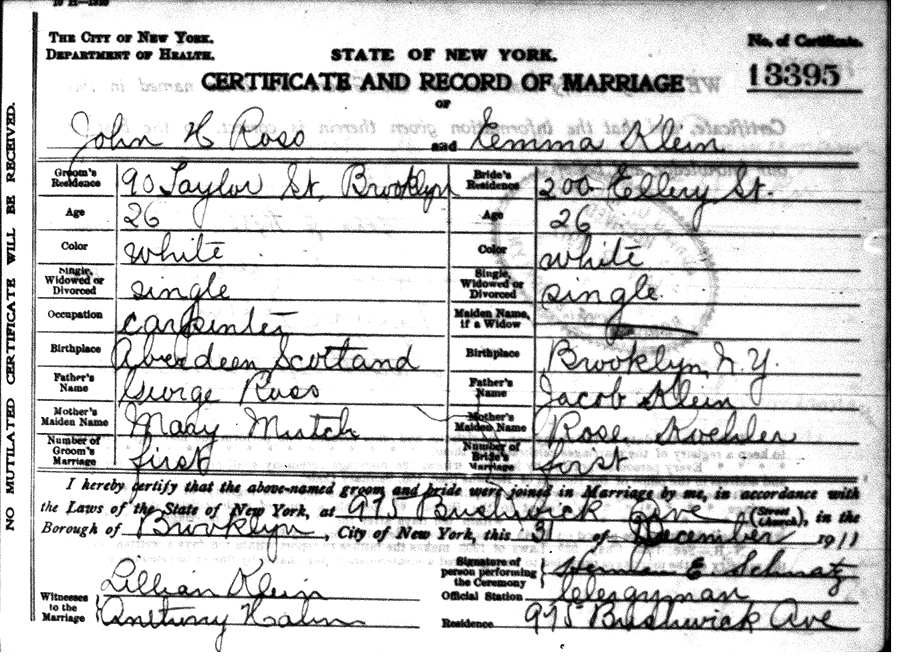 THE CITY OF NEW YORK.
DEPARTMENT OF HEALTH.
STATE OF NEW YORK.
No. of Certificate.
CERTIFICATE AND RECORD OF MARRIAGE
13395
OF
John H Ross and Emma Klein
Groom's Residence 90 Taylor St, Brooklyn Bride's Residence 200 Ellery St.
Age 26 Age 26
Color white Color white
Single, Widowed or Divorced single Single, Widowed or Divorced single
Occupation carpenter Maiden Name, if a Widow
Birthplace Aberdeen Scotland Birthplace Brooklyn, N.Y.
Father's Name George Ross Father's Name Jacob Klein
Mother's Maiden Name Mary Mutch Mother's Maiden Name Rose Koehler
Number of Groom's Marriage first Number of Bride's Marriage first
I hereby certify that the above-named groom and bride were joined in Marriage by me, in accordance with
the Laws of the State of New York, at 975 Bushwick Ave (Street Church), in the
Borough of Brooklyn, City of New York, this 31 of December 1911
Witnesses to the Marriage Lillian Klein
Anthony Hahn
Signature of person performing the Ceremony Herman E. Schnatz
Official Station Clergyman
Residence 975 Bushwick Ave
NO MUTILATED CERTIFICATE WILL BE RECEIVED.